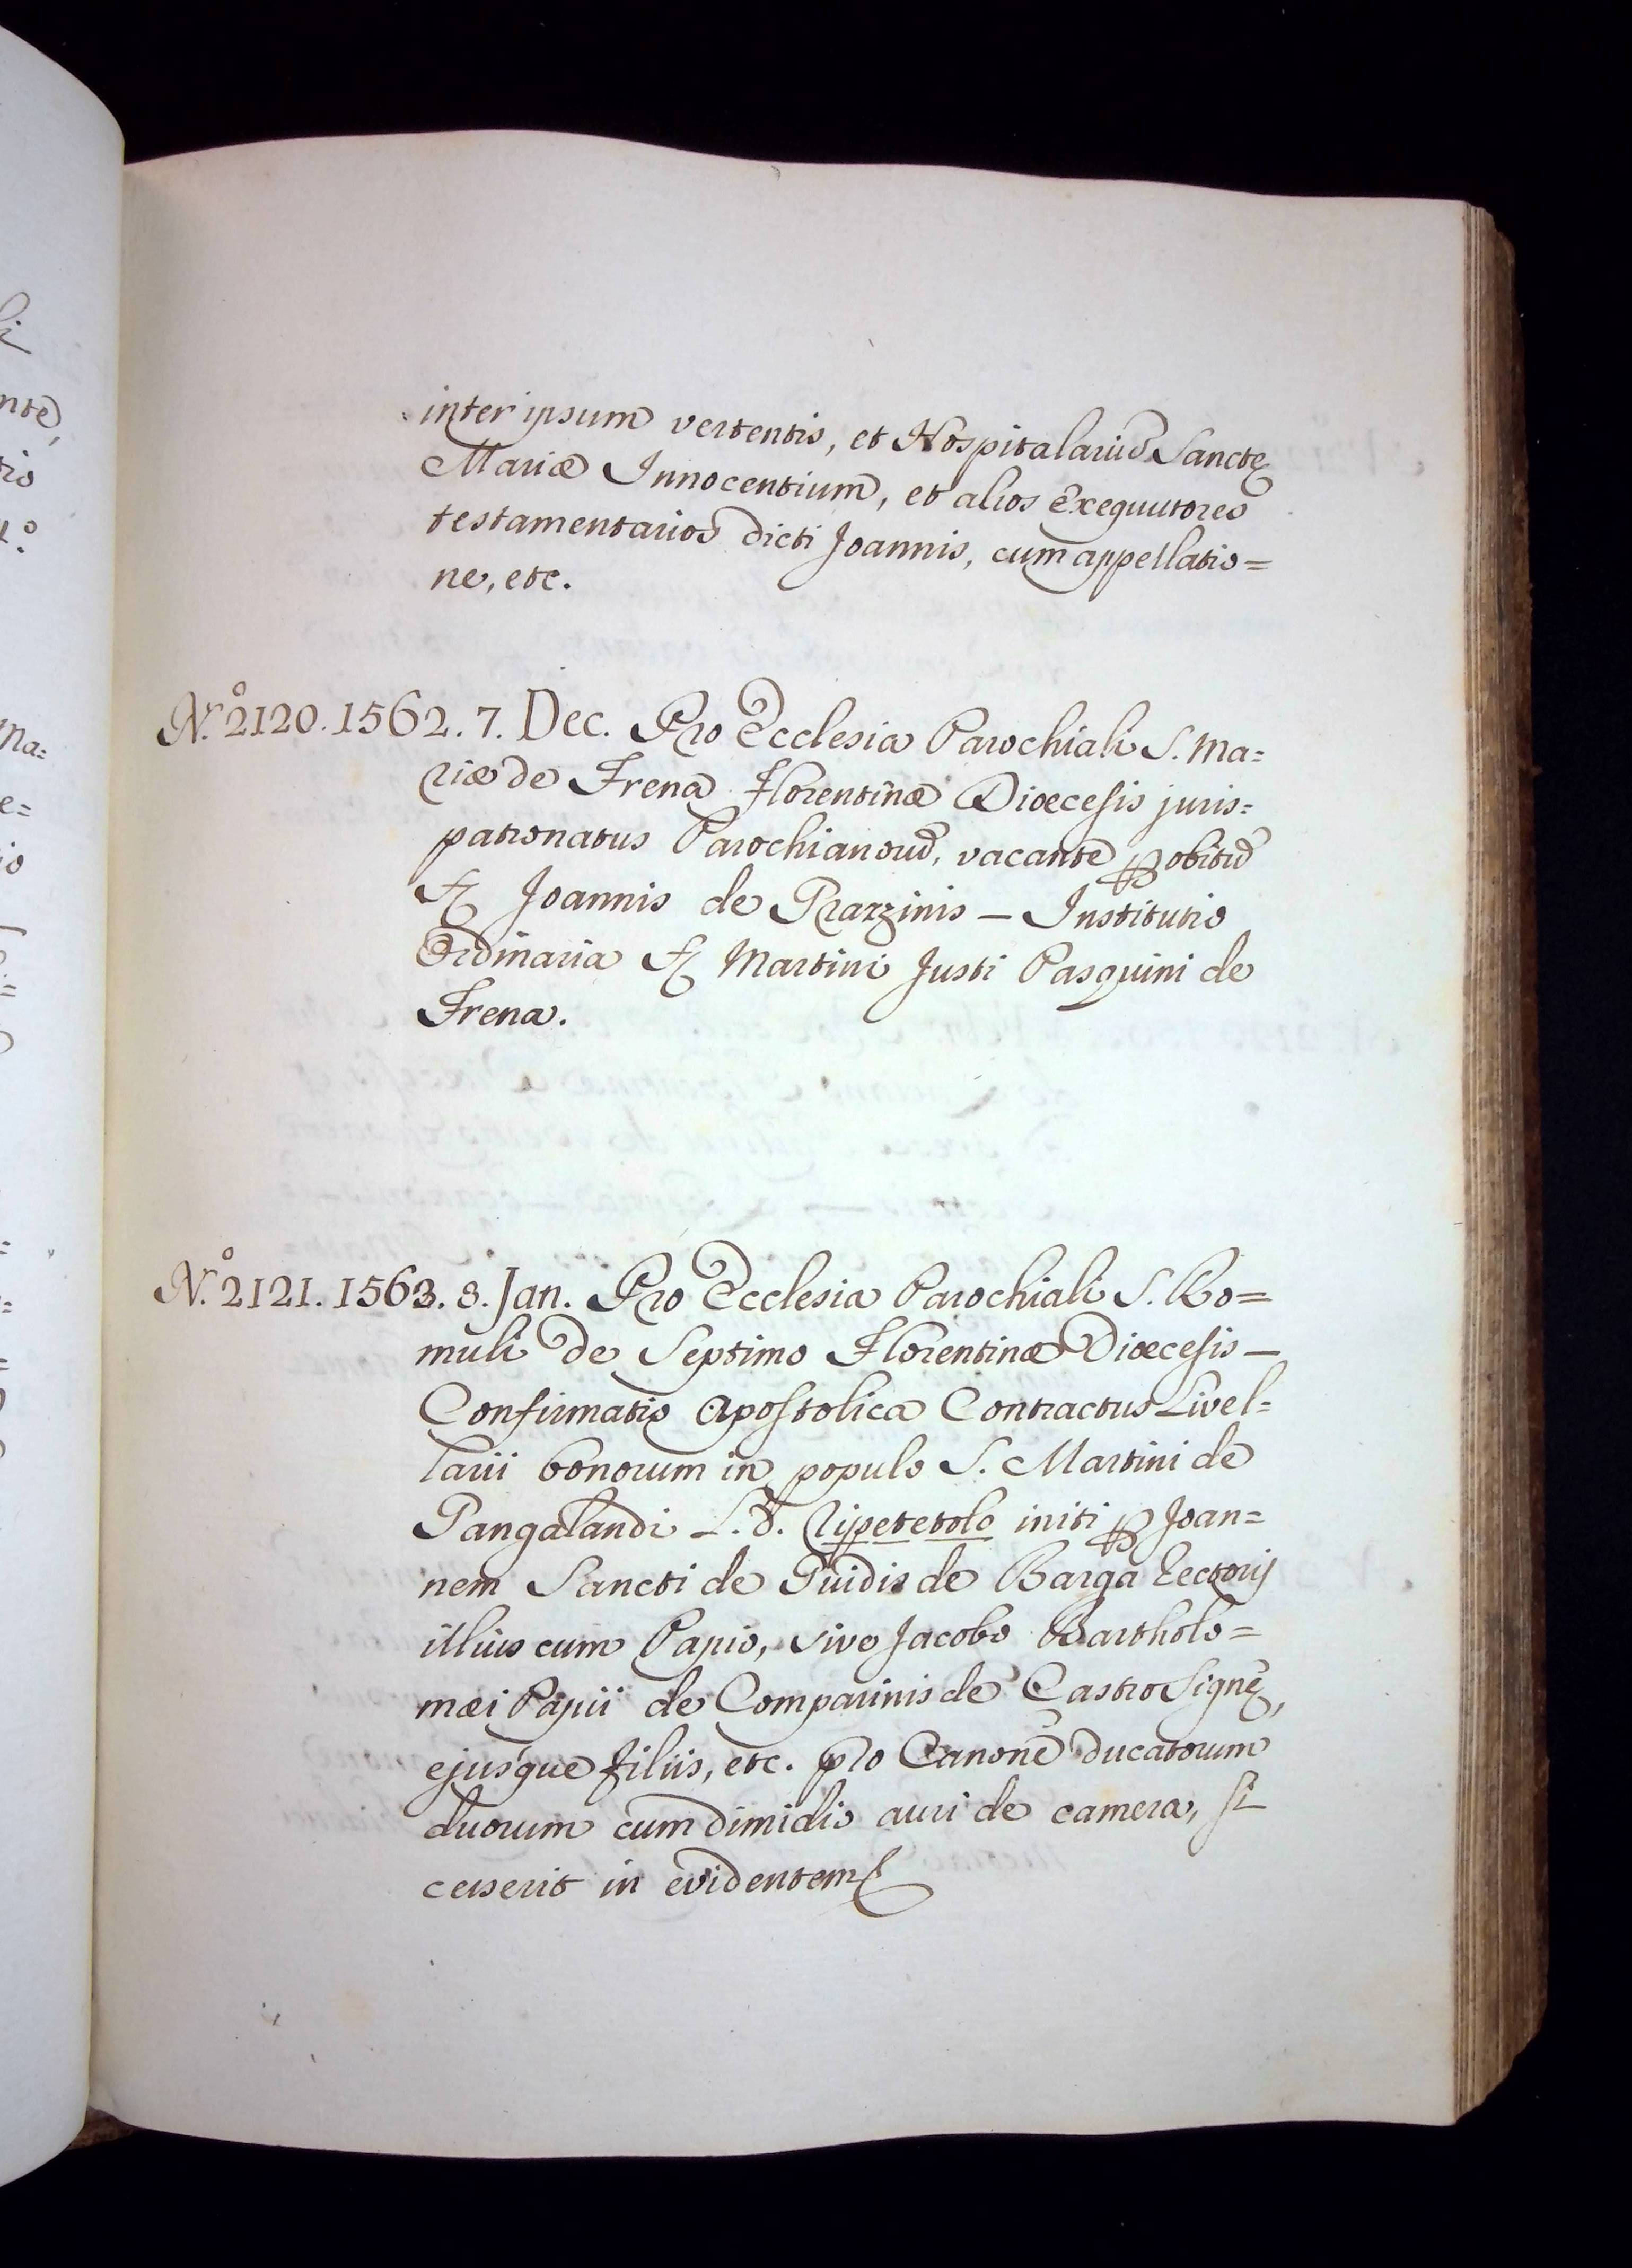 inter ipsum vertentis, et Hospitalariũ Sanctę
Mariæ Innocentium, et alios Exequutores
testamentarios dicti Joannis, cum appellatio=
ne, etc.
N.º 2120. 1562. 7. Dec. Pro Ecclesia Parochiali S. Ma=
riæ de Frena Florentinæ Diœcesis juris=
patronatus Parochianorũ, vacante ꝑ obitũ
Joannis de Prarzinis — Institutio
Ordinaria Martini Justi Pasquini de
Frena.
N.º 2121. 1563. 8. Jan. Pro Ecclesia Parochiali S. Ro=
muli de Septimo Florentinæ Diœcesis —
Confirmatio Apostolica Contractus Livel=
larii bonorum in populo S. Martini de
Gangalandi L. d. Ripetetolo initi ꝑ Joan=
nem Sancti de Guidis de Barga Rectorij
illius cum Papio, sive Jacobo Bartholo=
mæi Papii de Comparinis de Castro Signę,
ejusque filiis, etc. pro Canone ducatorum
duorum cum dimidio auri de camera, si
cesserit in evidentem